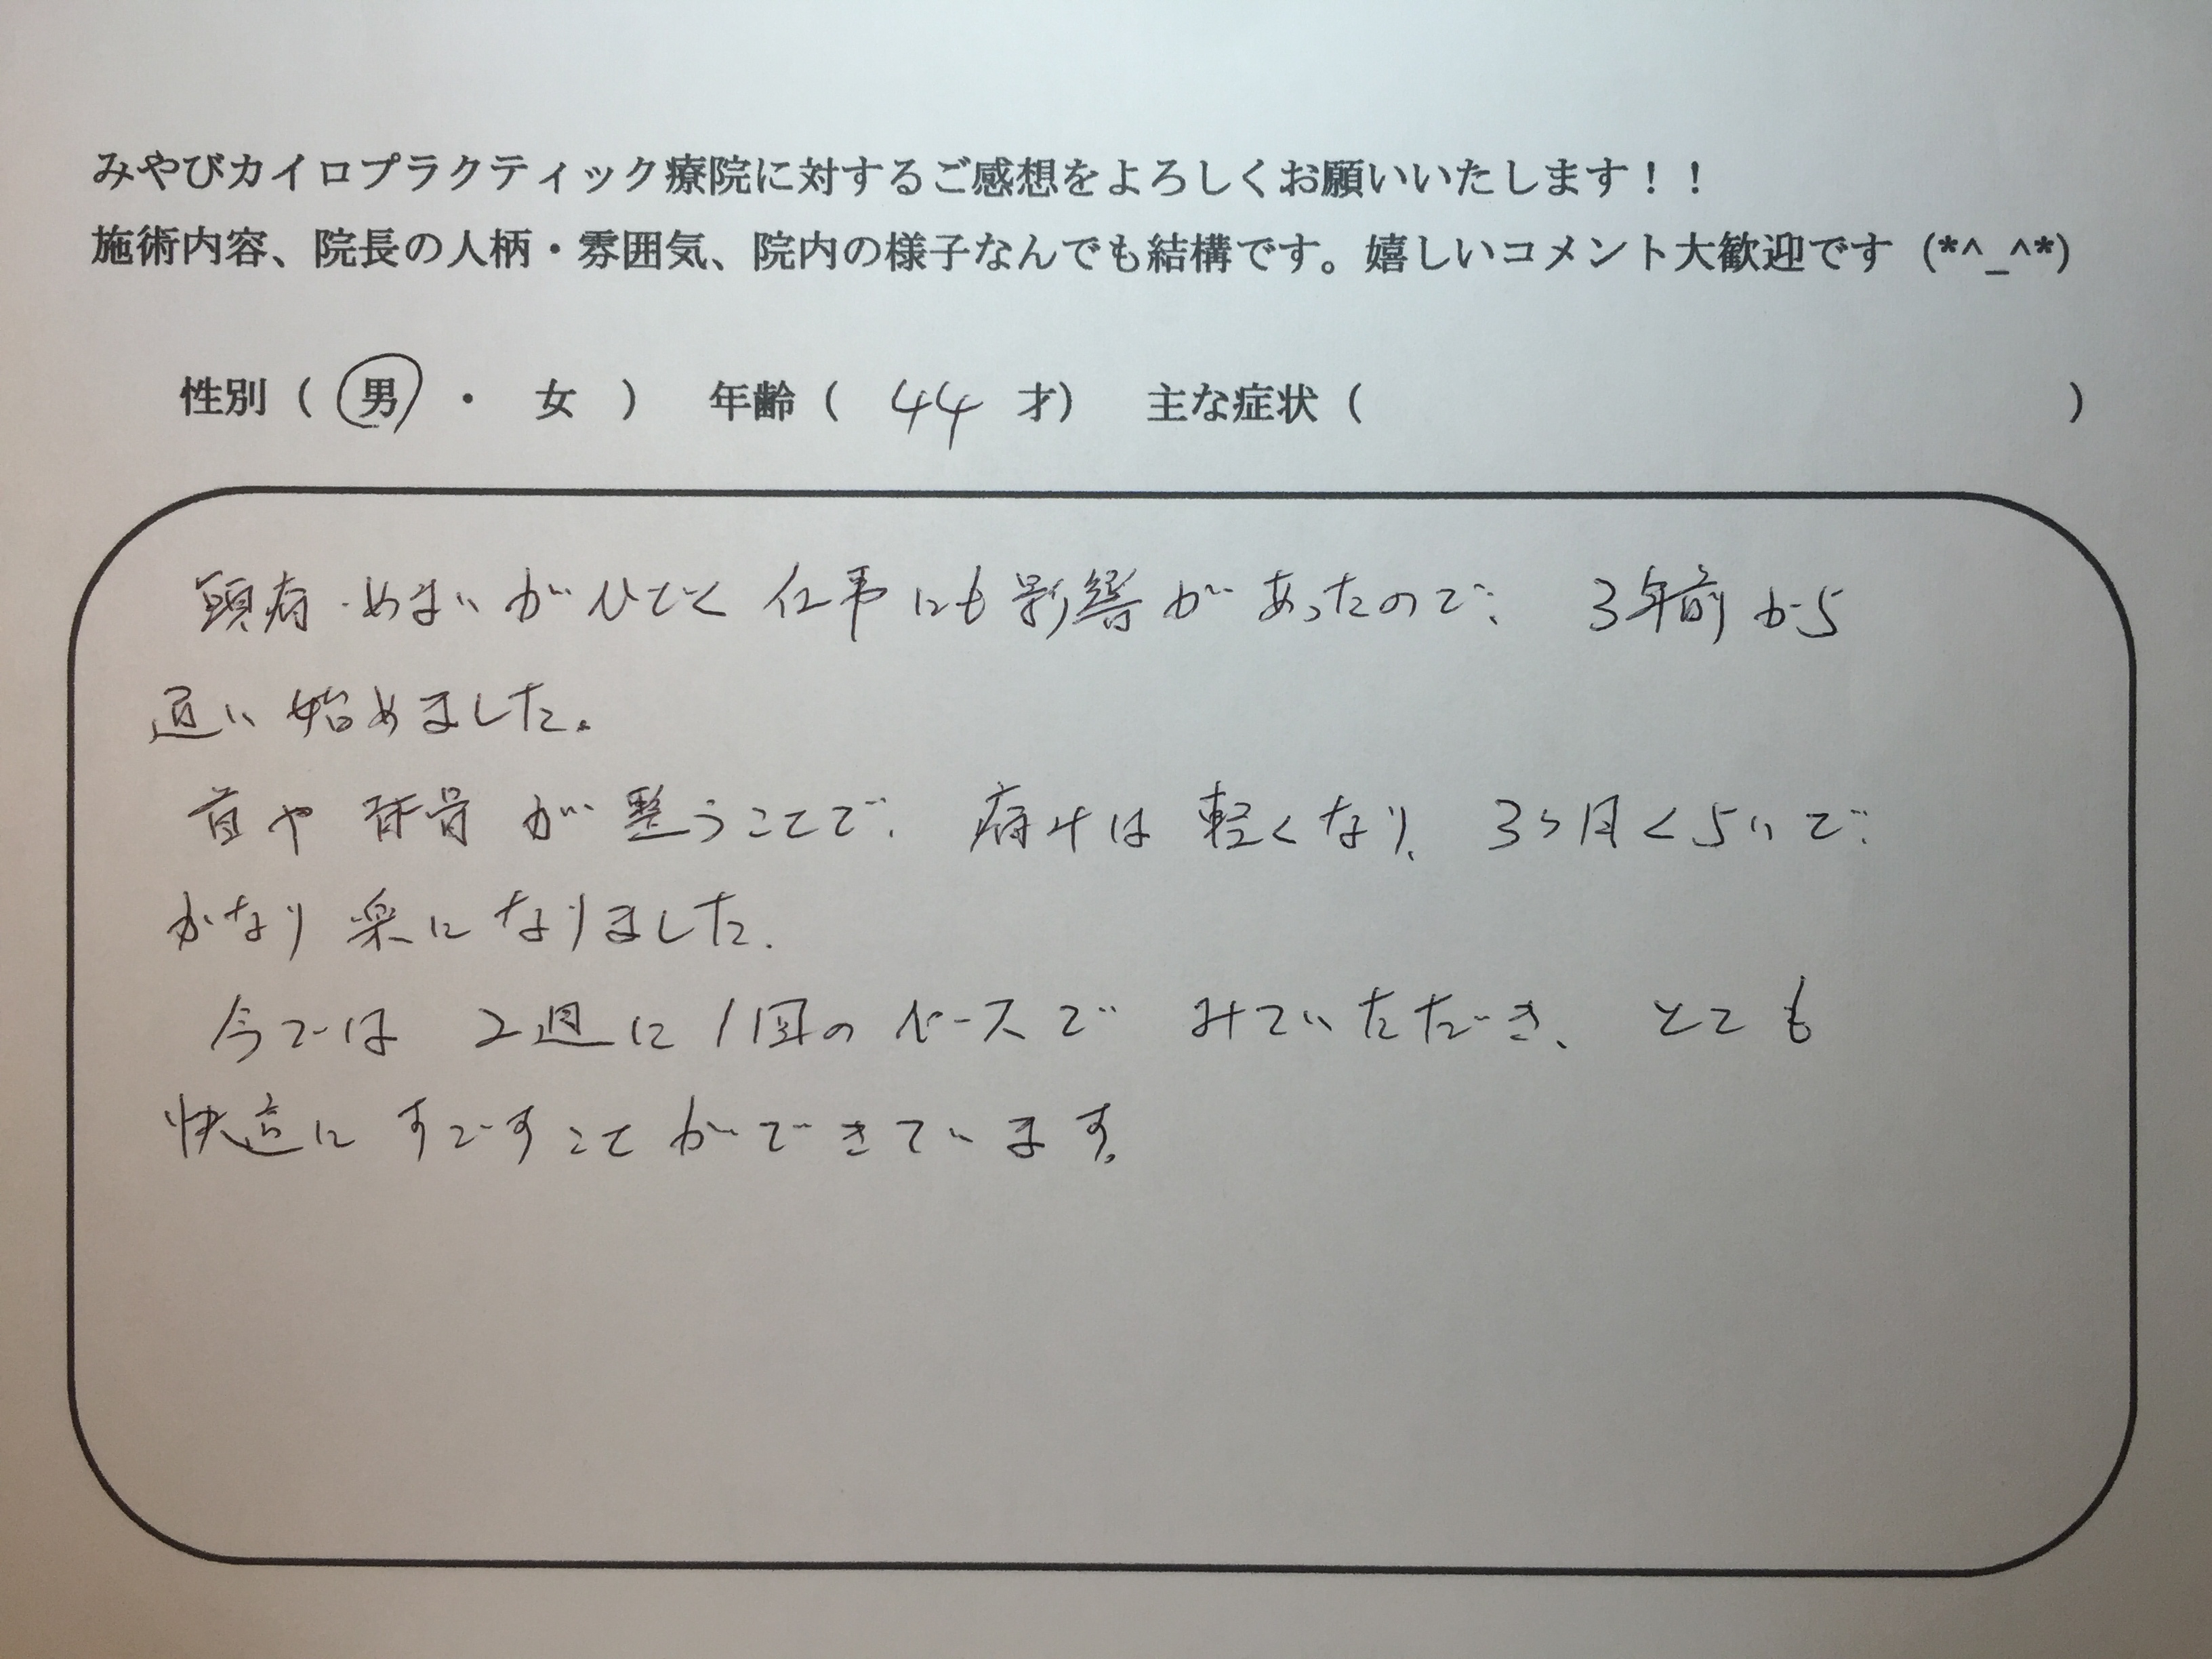 みやびカイロプラクティック療院に対するご感想をよろしくお願いいたします！！
施術内容、院長の人柄・雰囲気、院内の様子なんでも結構です。嬉しいコメント大歓迎です (*^_^*)
性別（ 男 ・ 女 ） 年齢（ 44 才） 主な症状（ ）
頭痛・めまいがひどく仕事にも影響があったので、3年前から
通い始めました。
首や背骨が整うことで、痛みは軽くなり、3ヶ月くらいで
かなり楽になりました。
今では2週に1回のペースでみていただき、とても
快適にすごすことができています。